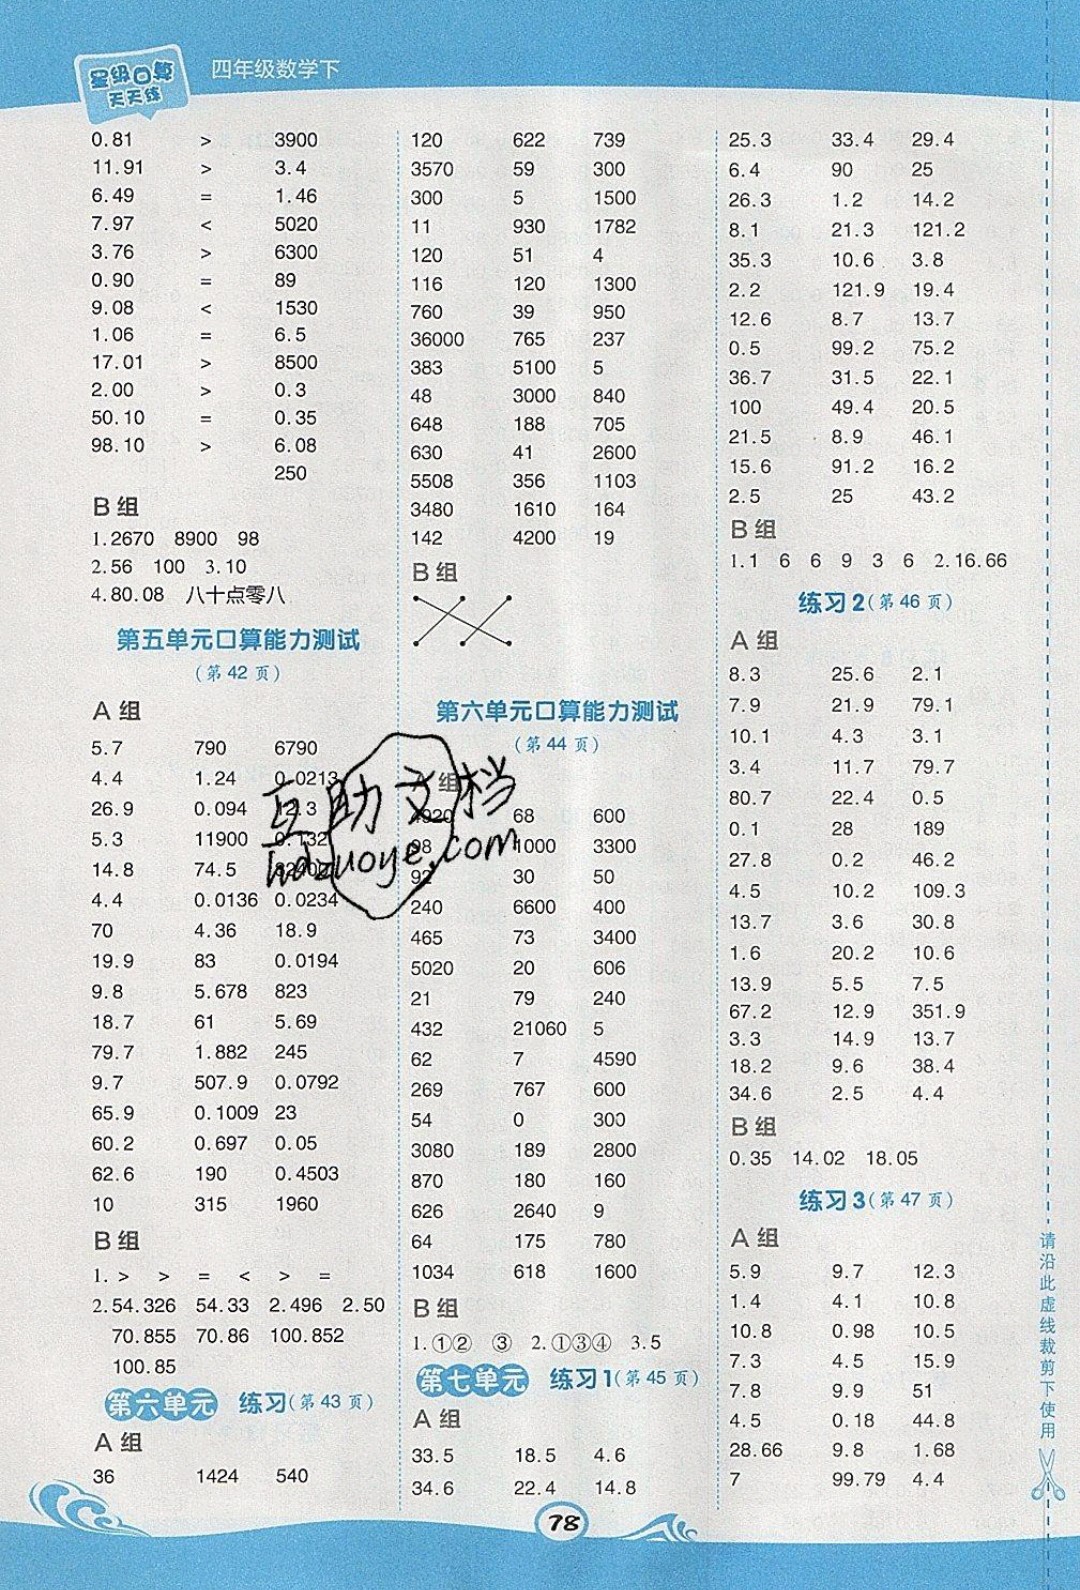 星级口算
天天练
四年级数学下
0.81 > 3900
11.91 > 3.4
6.49 = 1.46
7.97 < 5020
3.76 > 6300
0.90 = 89
9.08 < 1530
1.06 = 6.5
17.01 > 8500
2.00 > 0.3
50.10 = 0.35
98.10 > 6.08
250
B组
1.2670 8900 98
2.56 100 3.10
4.80.08 八十点零八
第五单元口算能力测试
(第42页)
A组
5.7 790 6790
4.4 1.24 0.0213
26.9 0.094 12.3
5.3 11900 0.132
14.8 74.5
4.4 0.0136 0.0234
70 4.36 18.9
19.9 83 0.0194
9.8 5.678 823
18.7 61 5.69
79.7 1.882 245
9.7 507.9 0.0792
65.9 0.1009 23
60.2 0.697 0.05
62.6 190 0.4503
10 315 1960
B组
1. > > = < > =
2.54.326 54.33 2.496 2.50
70.855 70.86 100.852
100.85
第六单元 练习(第43页)
A组
36 1424 540
120 622 739
3570 59 300
300 5 1500
11 930 1782
120 51 4
116 120 1300
760 39 950
36000 765 237
383 5100 5
48 3000 840
648 188 705
630 41 2600
5508 356 1103
3480 1610 164
142 4200 19
B组
第六单元口算能力测试
(第44页)
A组
4920 68 600
98 1000 3300
92 30 50
240 6600 400
465 73 3400
5020 20 606
21 79 240
432 21060 5
62 7 4590
269 767 600
54 0 300
3080 189 2800
870 180 160
626 2640 9
64 175 780
1034 618 1600
B组
1.①② ③ 2.①③④ 3.5
第七单元 练习1(第45页)
A组
33.5 18.5 4.6
34.6 22.4 14.8
25.3 33.4 29.4
6.4 90 25
26.3 1.2 14.2
8.1 21.3 121.2
35.3 10.6 3.8
2.2 121.9 19.4
12.6 8.7 13.7
0.5 99.2 75.2
36.7 31.5 22.1
100 49.4 20.5
21.5 8.9 46.1
15.6 91.2 16.2
2.5 25 43.2
B组
1.1 6 6 9 3 6 2.16.66
练习2(第46页)
A组
8.3 25.6 2.1
7.9 21.9 79.1
10.1 4.3 3.1
3.4 11.7 79.7
80.7 22.4 0.5
0.1 28 189
27.8 0.2 46.2
4.5 10.2 109.3
13.7 3.6 30.8
1.6 20.2 10.6
13.9 5.5 7.5
67.2 12.9 351.9
3.3 14.9 13.7
18.2 9.6 38.4
34.6 2.5 4.4
B组
0.35 14.02 18.05
练习3(第47页)
A组
5.9 9.7 12.3
1.4 4.1 10.8
10.8 0.98 10.5
7.3 4.5 15.9
7.8 9.9 51
4.5 0.18 44.8
28.66 9.8 1.68
7 99.79 4.4
请沿此虚线裁剪下使用
78
互助文档
hdzuoye.com